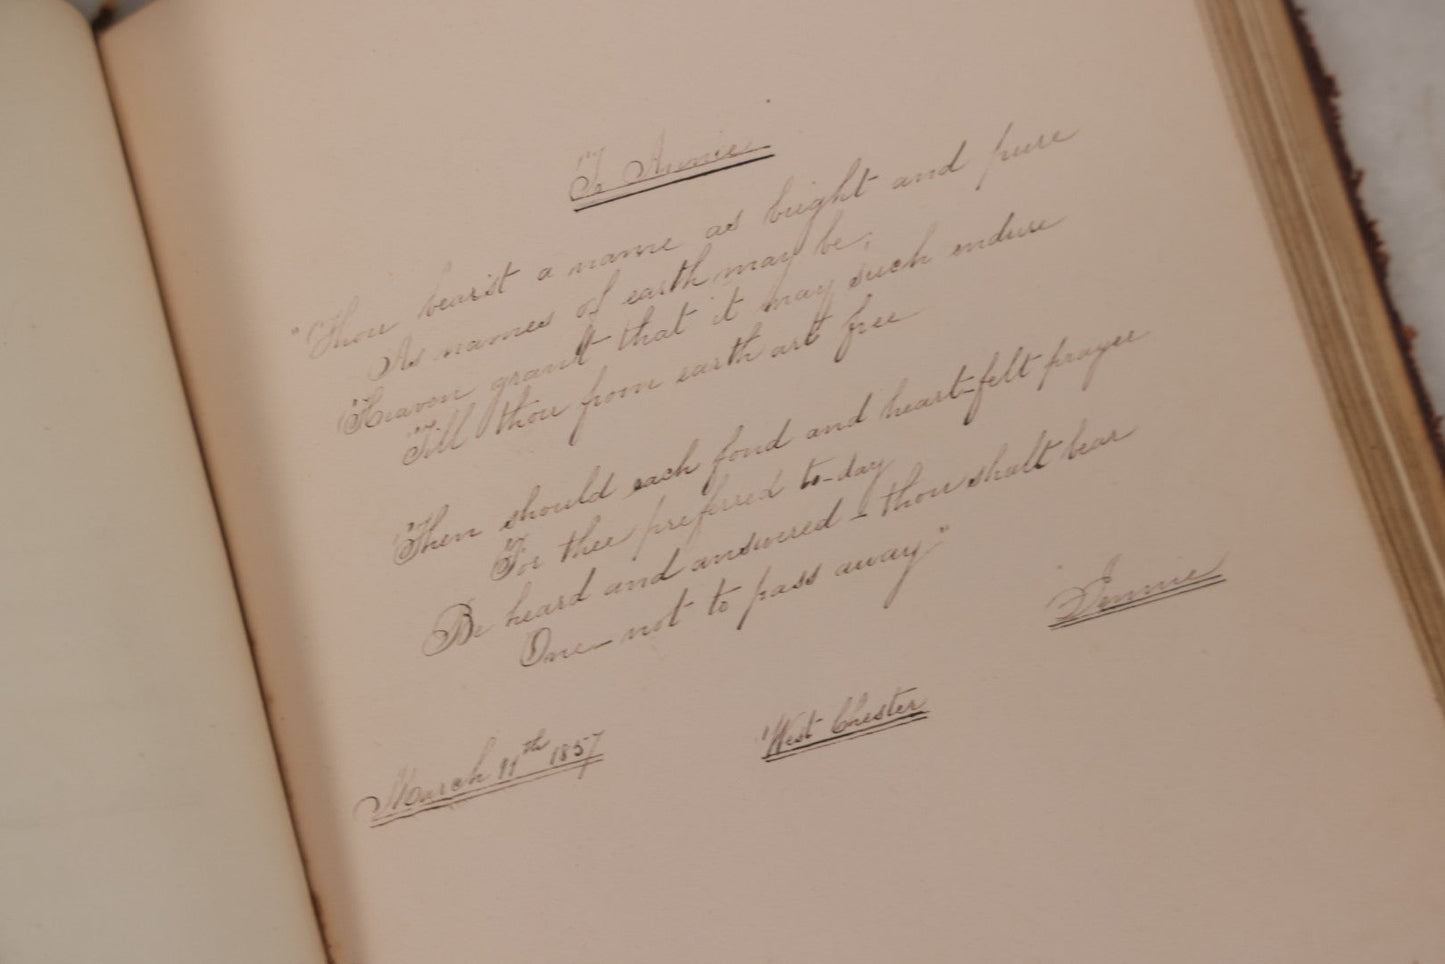 To Annie
"Thou bear'st a name as bright and pure
As names of earth may be;
Heaven grant that it may such endure
Till thou from earth art free
Then should each fond and heart-felt prayer
For thee preferred to-day
Be heard and answered - thou shalt bear
One - not to pass away."
Jennie
March 11th 1857
West Chester